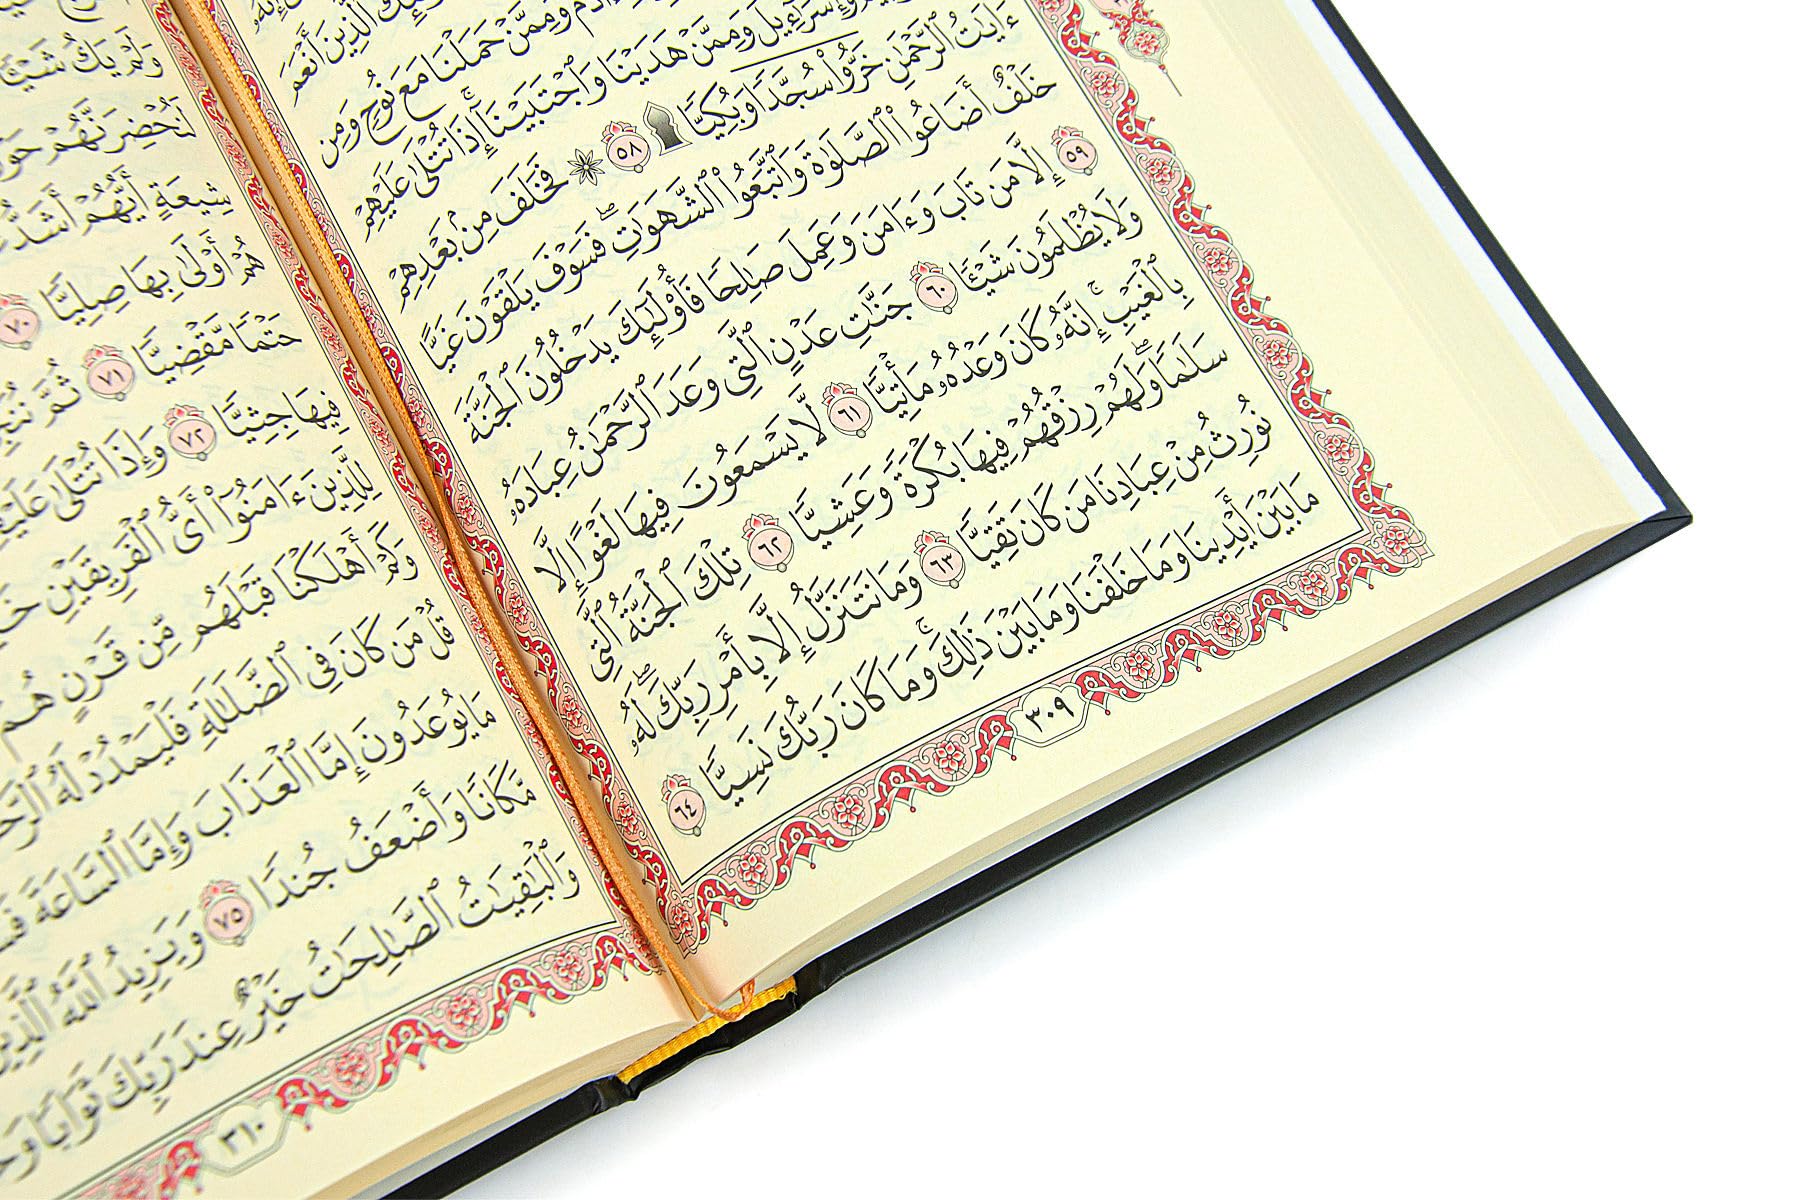 ٱلَّذِينَ أَنْعَمَ
وَمِمَّنْ حَمَلْنَا مَعَ نُوحٍ وَمِن
وَإِسْرَٰٓءِيلَ وَمِمَّنْ هَدَيْنَا وَٱجْتَبَيْنَآ ۚ إِذَا تُتْلَىٰ عَلَيْهِمْ
ءَايَٰتُ ٱلرَّحْمَٰنِ خَرُّوا۟ سُجَّدًا وَبُكِيًّا ۩ ٥٨ ۞ فَخَلَفَ مِنۢ بَعْدِهِمْ
خَلْفٌ أَضَاعُوا۟ ٱلصَّلَوٰةَ وَٱتَّبَعُوا۟ ٱلشَّهَوَٰتِ ۖ فَسَوْفَ يَلْقَوْنَ غَيًّا
٥٩ إِلَّا مَن تَابَ وَءَامَنَ وَعَمِلَ صَٰلِحًا فَأُو۟لَٰٓئِكَ يَدْخُلُونَ ٱلْجَنَّةَ
وَلَا يُظْلَمُونَ شَيْـًٔا ٦٠ جَنَّٰتِ عَدْنٍ ٱلَّتِى وَعَدَ ٱلرَّحْمَٰنُ عِبَادَهُۥ
بِٱلْغَيْبِ ۚ إِنَّهُۥ كَانَ وَعْدُهُۥ مَأْتِيًّا ٦١ لَّا يَسْمَعُونَ فِيهَا لَغْوًا إِلَّا
سَلَٰمًا ۖ وَلَهُمْ رِزْقُهُمْ فِيهَا بُكْرَةً وَعَشِيًّا ٦٢ تِلْكَ ٱلْجَنَّةُ ٱلَّتِى
نُورِثُ مِنْ عِبَادِنَا مَن كَانَ تَقِيًّا ٦٣ وَمَا نَتَنَزَّلُ إِلَّا بِأَمْرِ رَبِّكَ ۖ لَهُۥ
مَا بَيْنَ أَيْدِينَا وَمَا خَلْفَنَا وَمَا بَيْنَ ذَٰلِكَ ۚ وَمَا كَانَ رَبُّكَ نَسِيًّا ٦٤
٣٠٩
وَلَمْ يَكُ شَيْـًٔا
لَنُحْضِرَنَّهُمْ حَوْلَ
شِيعَةٍ أَيُّهُمْ أَشَدُّ
هُمْ أَوْلَىٰ بِهَا صِلِيًّا ٧٠
حَتْمًا مَّقْضِيًّا ٧١ ثُمَّ
فِيهَا جِثِيًّا ٧٢ وَإِذَا تُتْلَىٰ
لِلَّذِينَ ءَامَنُوٓا۟ أَىُّ ٱلْفَرِيقَيْنِ
وَكَمْ أَهْلَكْنَا قَبْلَهُم مِّن قَرْنٍ هُمْ
قُلْ مَن كَانَ فِى ٱلضَّلَٰلَةِ فَلْيَمْدُدْ لَهُ
مَا يُوعَدُونَ إِمَّا ٱلْعَذَابَ وَإِمَّا ٱلسَّاعَةَ
مَّكَانًا وَأَضْعَفُ جُندًا ٧٥ وَيَزِيدُ ٱللَّهُ
وَٱلْبَٰقِيَٰتُ ٱلصَّٰلِحَٰتُ خَيْرٌ عِندَ رَبِّكَ ثَوَابًا
٣١٠